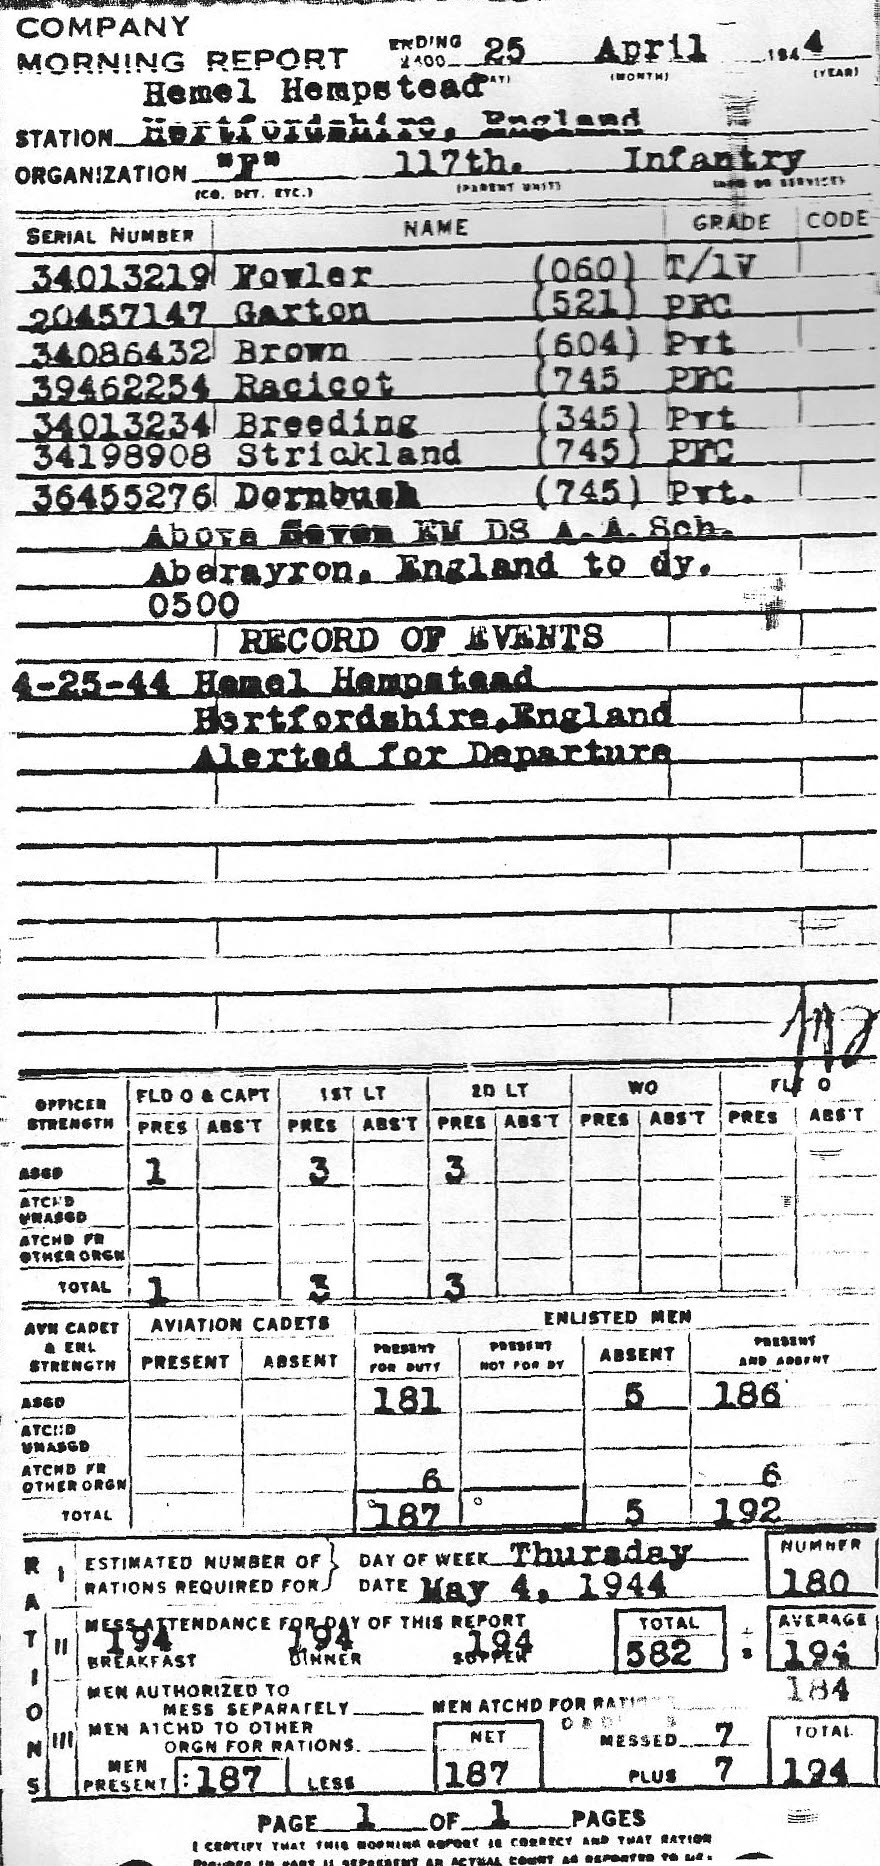 COMPANY
MORNING REPORT ENDING 2400 25 April 1944
(DAY) (MONTH) (YEAR)
Hemel Hempstead
STATION Hertfordshire, England
ORGANIZATION "F" 117th. Infantry
(CO. DET. ETC.) (PARENT UNIT) (ARM OR SERVICE)
SERIAL NUMBER NAME GRADE CODE
34013219 Fowler (060) T/1V
20457147 Garton (521) PFC
34086432 Brown (604) Pvt
39462254 Racicot (745 PFC
34013234 Breeding (345) Pvt
34198908 Strickland (745) PFC
36455276 Dornbush (745) Pvt.
Above Seven EM DS A.A. Sch.
Aberayron, England to dy.
0500
RECORD OF EVENTS
4-25-44 Hemel Hempstead
Hertfordshire,England
Alerted for Departure
OFFICER STRENGTH FLD O & CAPT 1ST LT 2D LT WO FLT O
PRES ABS'T PRES ABS'T PRES ABS'T PRES ABS'T PRES ABS'T
ASGD 1 3 3
ATCHD UNASGD
ATCHD FR OTHER ORGN
TOTAL 1 3 3
AVN CADET & ENL STRENGTH AVIATION CADETS ENLISTED MEN
PRESENT ABSENT PRESENT FOR DUTY PRESENT NOT FOR DY ABSENT PRESENT AND ABSENT
ASGD 181 5 186
ATCHD UNASGD
ATCHD FR OTHER ORGN 6 6
TOTAL 187 5 192
RATIONS
I ESTIMATED NUMBER OF RATIONS REQUIRED FOR } DAY OF WEEK Thursday NUMBER
DATE May 4, 1944 180
II MESS ATTENDANCE FOR DAY OF THIS REPORT TOTAL AVERAGE
194 194 194 582 : 194
BREAKFAST DINNER SUPPER
184
MEN AUTHORIZED TO MESS SEPARATELY MEN ATCHD FOR RATIONS
III MEN ATCHD TO OTHER ORGN FOR RATIONS NET MESSED 7 TOTAL
MEN PRESENT : 187 LESS 187 PLUS 7 194
PAGE 1 OF 1 PAGES
I CERTIFY THAT THIS MORNING REPORT IS CORRECT AND THAT RATION
FIGURES IN PART II REPRESENT AN ACTUAL COUNT AS REPORTED TO ME.